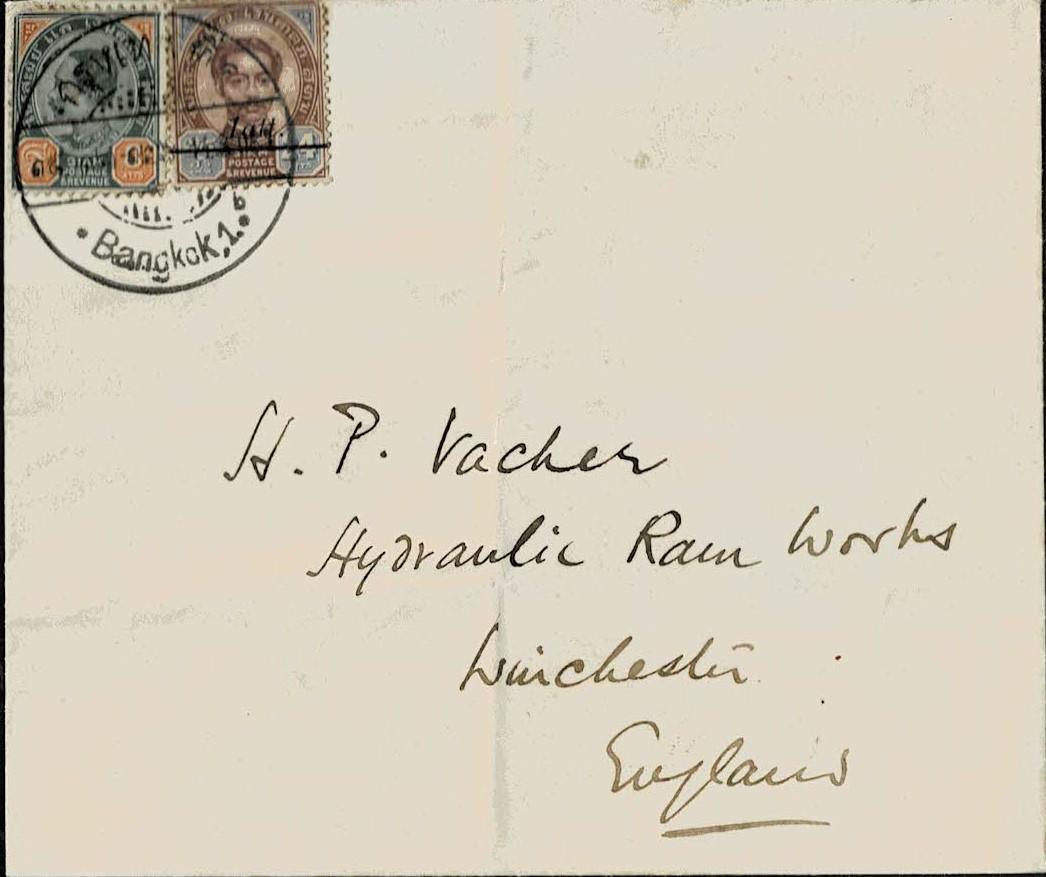 1 Att.
SIAM
POSTAGE
& REVENUE
ATTS
POSTAGE
& REVENUE
Bangkok, 1.
H. P. Vacher
Hydraulic Ram Works
Winchester
England